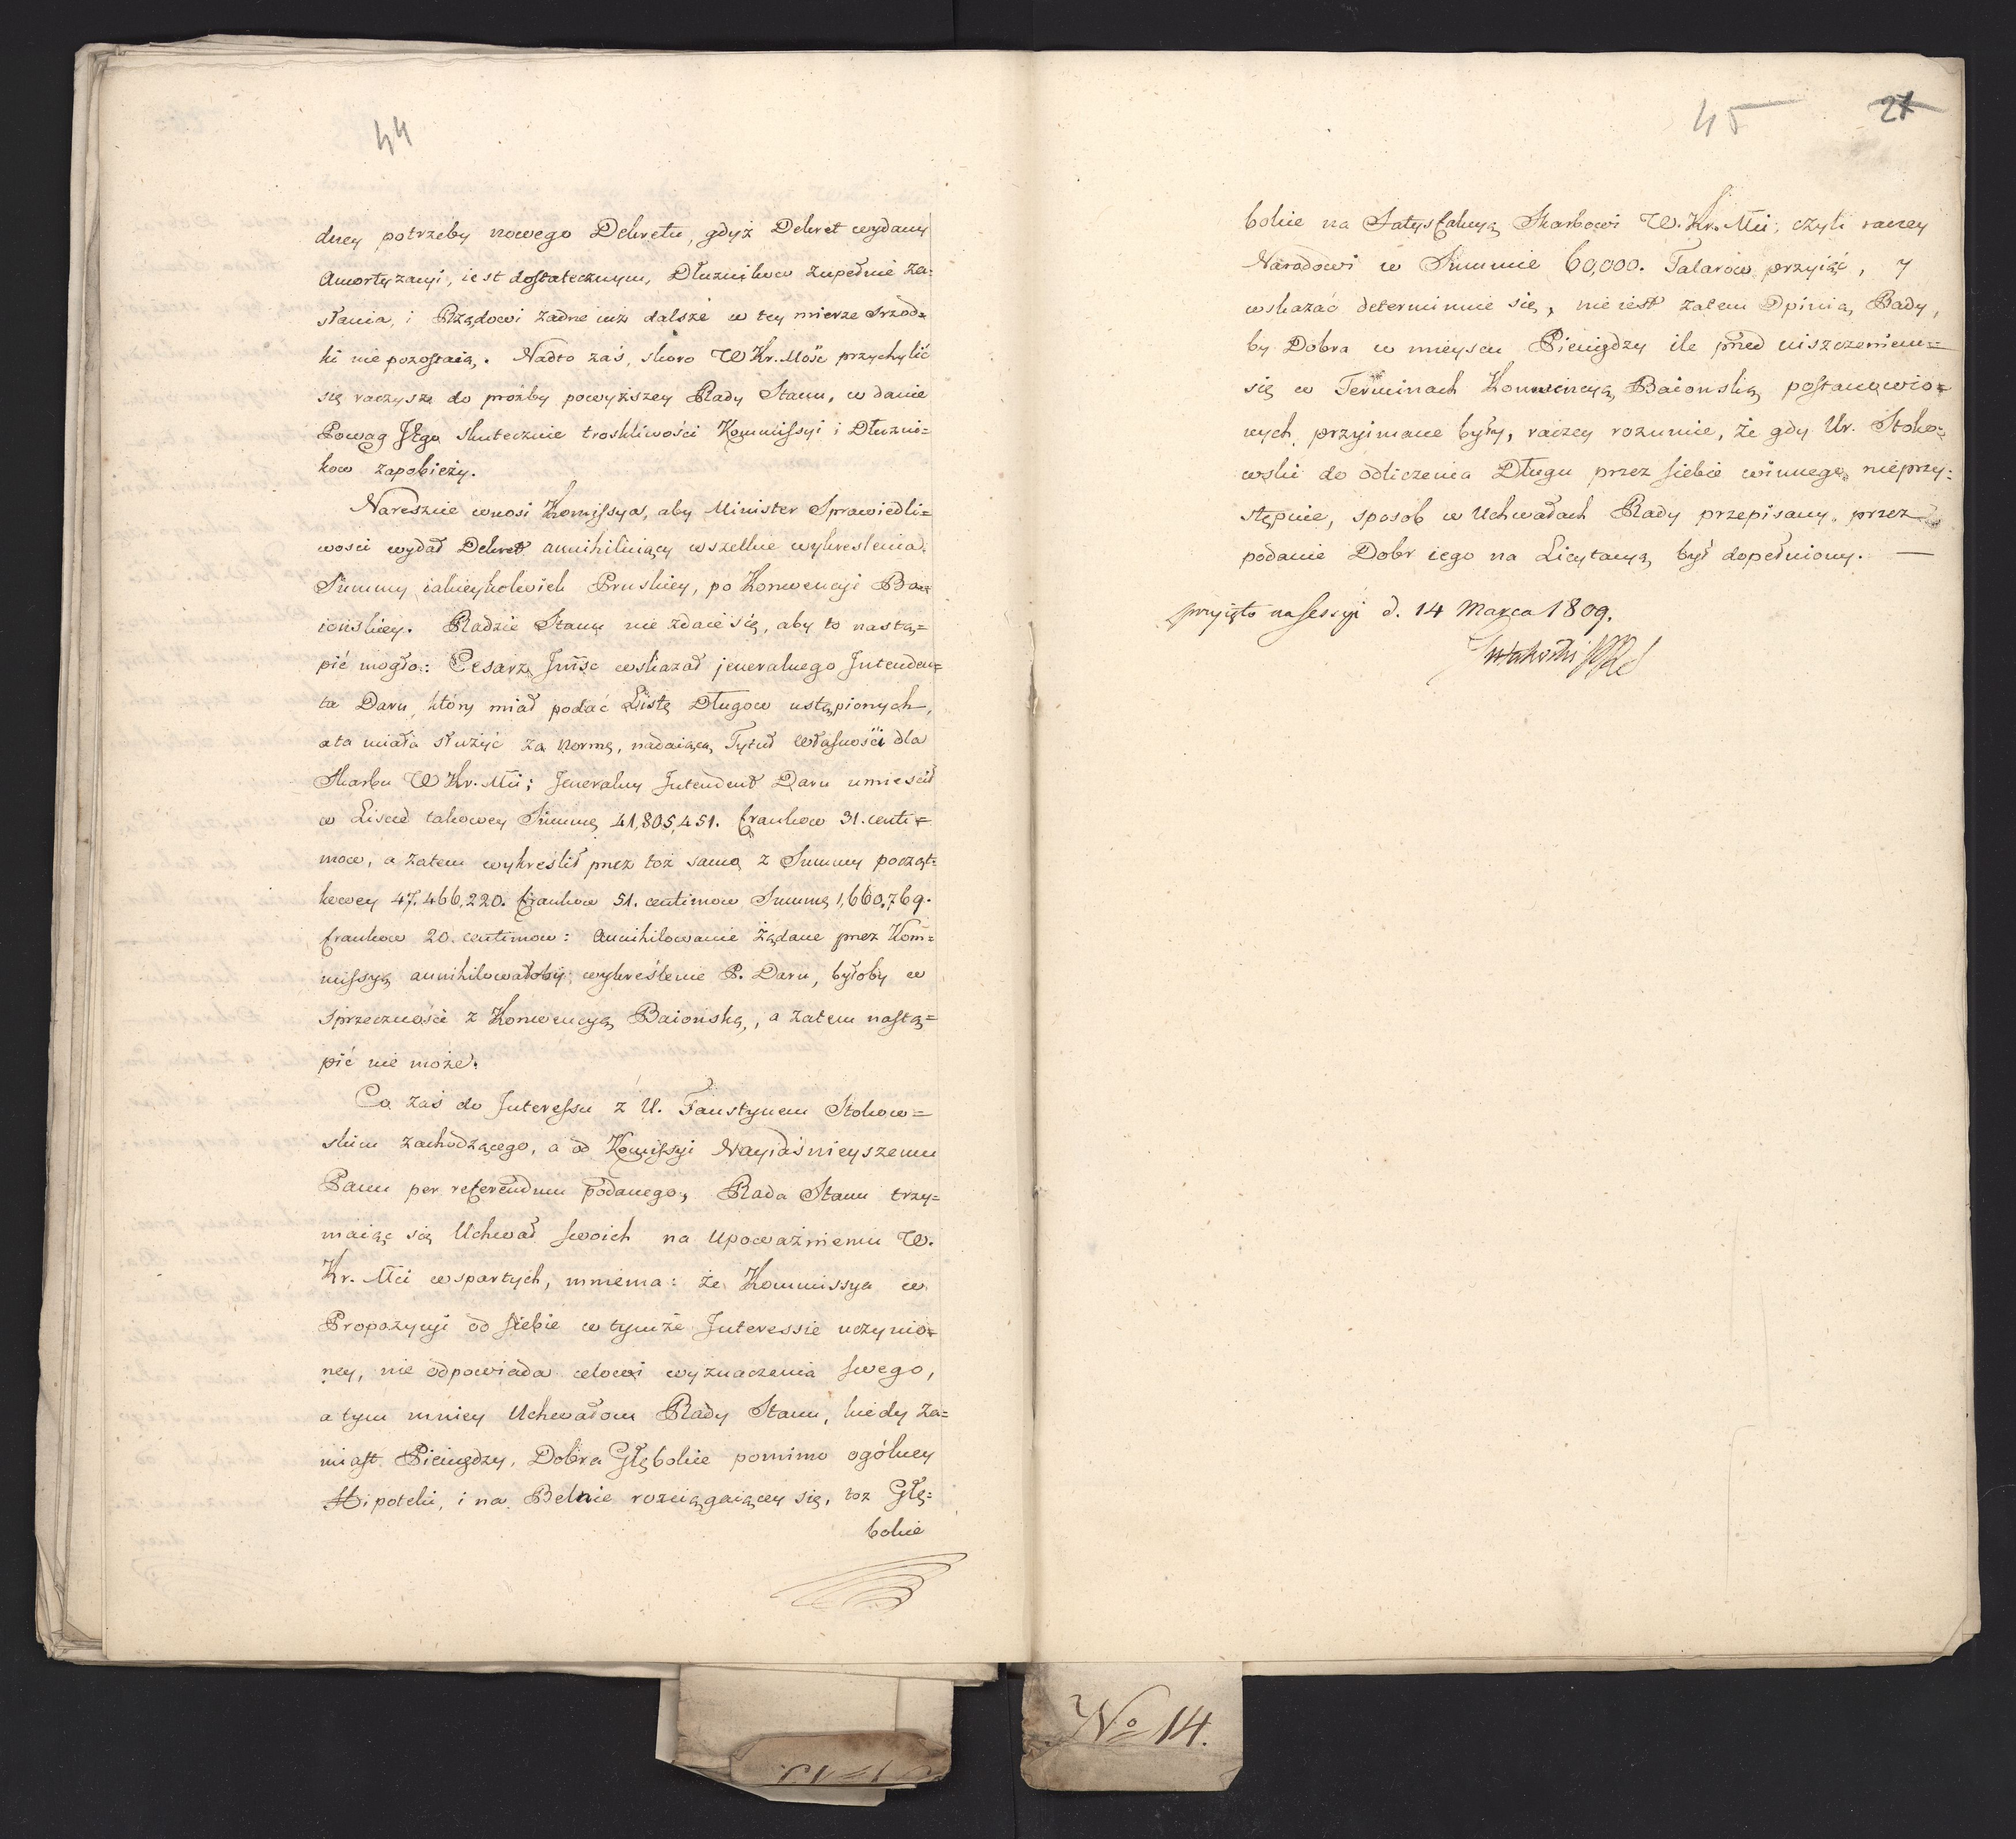 44
dney potrzeby nowego Dekretu, gdyż Dekret wydany
Amortyzacyi, iest dostatecznym, Dłużnikow zupełnie za=
słania, i Rządowi żadne iuż dalsze w tey mierze srzod=
ki nie pozostaią. Nadto zaś, skoro W Kr. Mość przychylić
się raczysz do proźby powyższey Rady Stanu, wdanie
Powag Jego skutecznie troskliwości Kommissyi i Dłużni=
kow zapobieży.
Nareszcie wnosi Komissya, aby Minister Sprawiedli=
wości wydał Dekret annihiluiący wszelkie wykreslenia
Summy iakieykolwiek Pruskiey, po Konwencyi Ba=
ionskiey. Radzie Stanu nie zdaie się, aby to nastą=
pić mogło: Cesarz Jmść wskazał jeneralnego Intenden=
ta Daru, który miał podać Listę Długow ustąpionych,
a ta miała służyć za normę, nadaiącą Tytuł własności dla
Skarbu W Kr. Mci; Jeneralny Intendent Daru umiescił
w Liscie takowey Summę 41,805,451. frankow 31. centi=
mow, a zatem wykreślił przez toż samo z Summy począt=
kowey 47.466,220. frankow 51. centimow Summę 1,660,769.
frankow 20. centimow: Annihilowanie żądane przez Kom=
missyą annihilowałoby wykreślenie P. Daru, byłoby w
sprzeczności z Konwencyą Baionską, a zatem nastą=
pić nie może.
Co zaś do Interessu z U. Faustynem Stokow=
skim zachodzącego, a od Komissyi Nayiaśnieyszemu
Panu per referendum podanego, Rada Stanu trzy=
maiąc się Uchwał swoich na Upoważnieniu W.
Kr. Mci wspartych, mniema: że Kommissya w
Propozycyi od siebie w tymże Interessie uczynio=
ney, nie odpowiada celowi wyznaczenia swego,
a tym mniey Uchwałom Rady Stanu, kiedy za=
miast Pieniędzy, Dobra Głębokie pomimo ogólney
Hipoteki, i na Belnie rozciągaiącey się, toż Głę=
bokie
45
21
bokie na Satysfakcyą Skarbowi W. Kr. Mci, czyli raczey
Narodowi w Summie 60,000. Talarów przyiąć, y
wskazać determinuie się, nie iest zatem Opinią Rady,
by Dobra w mieyscu Pieniędzy ile przed uiszczeniem=
się w Terminach Konwencyą Baionską postanowio=
nych przyimane były, raczey rozumie, że gdy Ur. Stoko=
wski do odliczenia Długu przez siebie winnego nieprzy=
stępuie, sposób w Uchwałach Rady przepisany, przez
podanie Dobr iego na Licytacyą był dopełniony. —
przyięto na Sessyi d. 14 Marca 1809.
No 14.